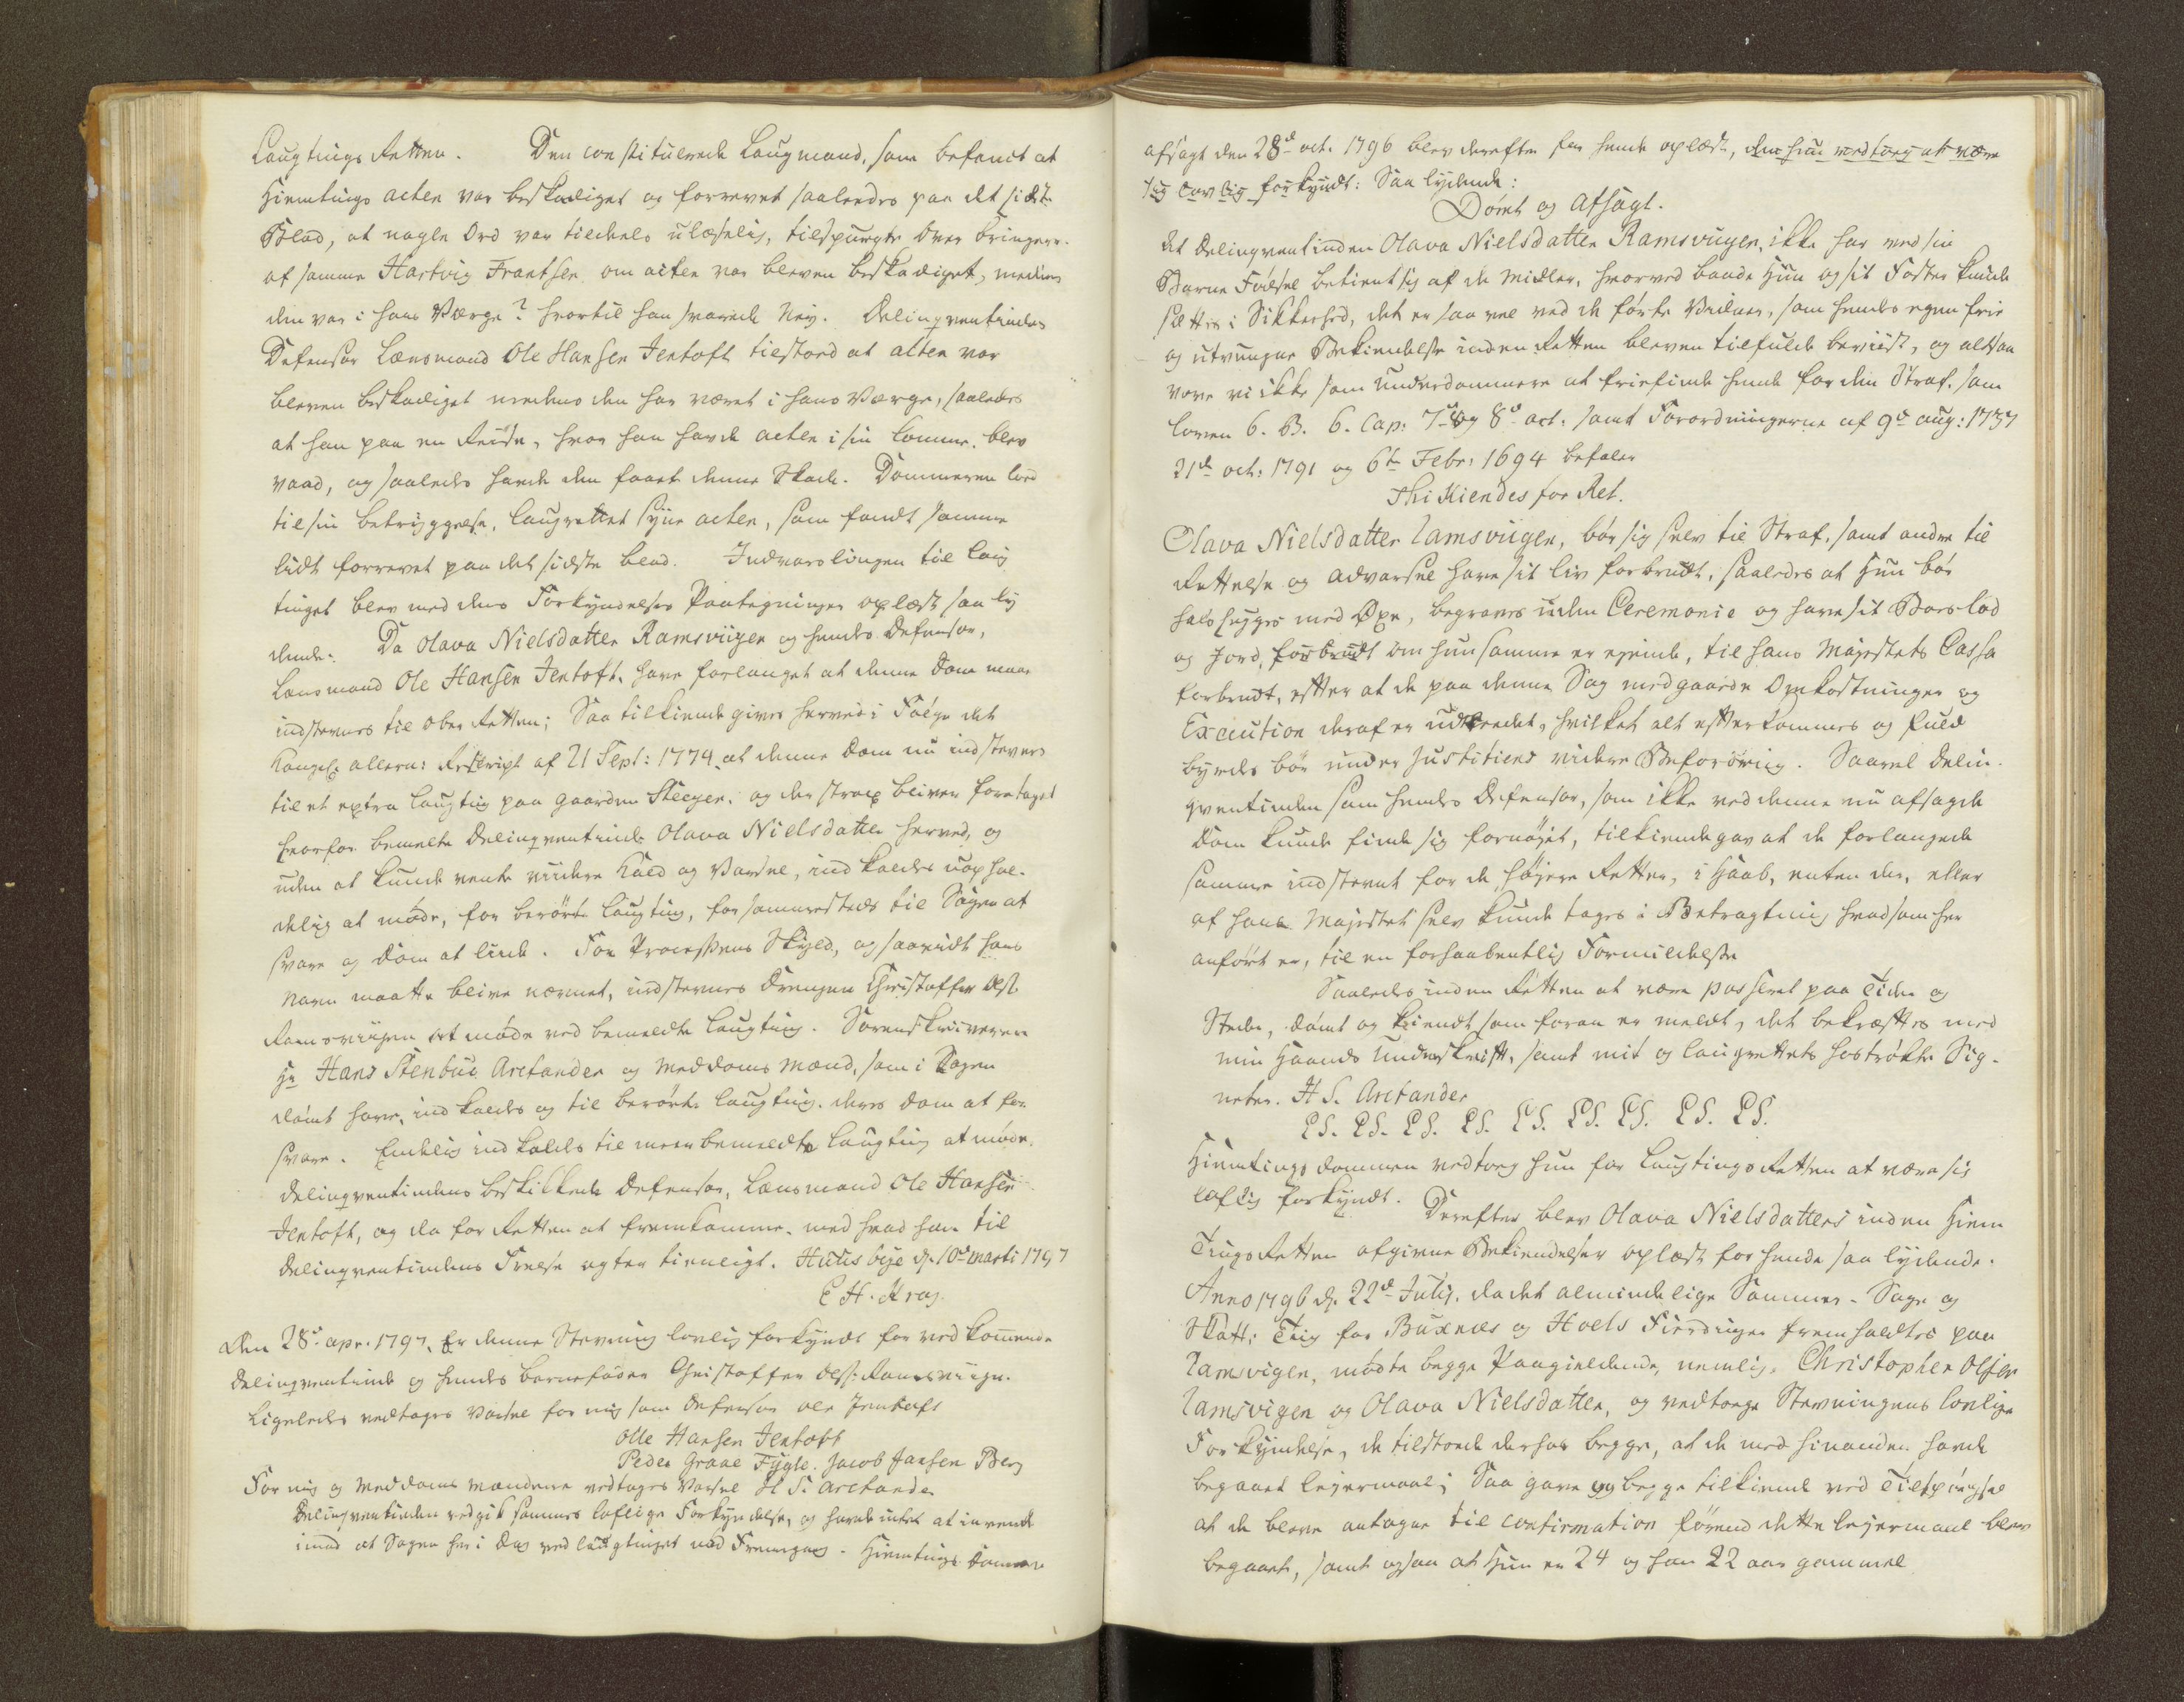 Laugtings Retten. Den constituerede Laugmand, som befandt at
Hiemtings acten var beskadiget og forrevet saaledes paa det sidste
Blad, at nogle Ord var tildeels ulæselig, tilspurgte Over bringeren
af samme Hartvig Frantsen om acten var bleven beskadiget, medens
den var i hans Værge? hvortil han svarede Nej. Delinqventindens
Defensor Lænsmand Ole Hansen Jentoft tilstoed at acten var
bleven beskadiget medens den har været i hans Værge, saaledes
at han paa en Reise, hvor han havde acten i sin Lomme, blev
vaad, og saaledes havde den faaet denne Skade. Dommeren lod
til sin betryggelse, laugrettet syne acten, som fandt samme
lidt forrevet paa det sidste blad. Indvarslingen til Laug
tinget blev med dens Forkyndelses Paategninger oplæst saa ly
dende: Da Olava Nielsdatter Ramsviigen og hendes Defensor,
Lænsmand Ole Hansen Jentoft, have forlanget at denne Dom maae
indstevnes til Ober Retten; Saa tilkiendegives herved i Følge det
Kongel: allern: Rescript af 21 Sept: 1774, at denne Dom nu indstevnes
til et extra laugting paa gaarden Steegen, og der strax bliver foretaget
hvorfor bemelte Delinqventinde Olava Nielsdatter herved, og
uden at kunde vente viidere Kald og Varsel, ind kaldes uophol-
delig at møde, for berørte laugting, for sammesteds til Sagen at
svare og Dom at liide. For Processens Skyld, og saavidt hans
Navn maatte blive nævnet, indstevnes Drengen Christoffer Ols:
Ramsviigen at møde ved bemeldte laugting. Sorenskriveren
Hr Hans Stenbuc Arctander og Meddoms Mænd, som i Sagen
dømt have, ind kaldes og til berørte laugting, deres Dom at for
svare. Endelig ind kaldes til meerbemeldte Laugting at møde
Delinqventindens beskikkede Defensor, Lænsmand Ole Hansen
Jentoft, og da for Retten at fremkomme, med hvad han til
Delinqventindens Frelse agter tienligt. d. 10de Marti 1797
C H. Krag.
Den 28d apr. 1797, Er denne Stevning lovlig forkyndt for ved kommende
Delinqventinde og hendes barnefader Christoffer Ols: Ramsviigen.
Ligeledes vedtages Varsel for mig som Defensor Ole Jentoft
Olle Hansen Jentoft
Peder Graae Fygle. Jacob Jansen Berg
For mig og Meddoms Mændene vedtages Varsel H S. Arctander
Delinqventinden vedgik sammes lovlige Forkyndelse, og havde intet at invende
imod at Sagen her i Dag ved laugtinget nød Fremgang. Hiemtings Dommen
afsagt den 28d oct. 1796 blev derefter for hende oplæst, den hun vedtoeg at være
sig lovlig forkyndt: Saa lydende:
Dømt og Afsagt.
At Delinqventinden Olava Nielsdatter Ramsvuigen, ikke har ved sin
Barne Fødsel betient sig af de Midler, hvorved baade Hun og sit Foster kunde
sættes i Sikkerhed, det er saa vel ved de førte Vidner, som hendes egen frie
og utvungne Bekiendelse inden Retten bleven tilfulde beviist, og altsaa
vove vi ikke som Underdommere at friefinde hende for den Straf, som
loven 6. B. 6. Cap: 7d og 8d art: samt Forordningerne af 9d aug: 1737
21de oct: 1791 og 6te Febr: 1694 befaler
Thi Kiendes for Ret.
Olava Nielsdatter Ramsviigen, bør sig selv til Straf, samt andre til
Rettelse og advarsel have sit liv forbrudt, saaledes at Hun bør
halshugges med Øxe, begraves uden Ceremonie og have sit Boeslod
og Jord, forbrudt om hun samme er ejende, til hans Majestets Cassa
forbrudt, efter at de paa denne Sag medgaaede Omkostninger og
Execution deraf er udreedet, hvilket alt efterkommes og fuld
byrdes bør under Justitiens videre Beforøring. Saavel Delin-
qventinden som hendes Defensor, som ikke ved denne nu afsagde
Dom kunde finde sig fornøjet, tilkiendegav at de forlangede
samme indstevnt for de høyere Retter, i Haab, enten der, eller
af hans Majestet selv kunde tages i Betragtning hvad som her
anført er, til en forhaabentlig Formildelse
Saaledes inden Retten at være passeret paa Tiden og
Stedet, dømt og kiendt som foran er meldt, det bekræftes med
min Haands Underskrift, samt mit og laugrettets hostrøkte Sig-
neter. H. S. Arctander
LS. LS. LS. LS. LS. LS. LS. LS. LS.
Hiemtings dommen vedtoeg hun for Laugtings Retten at være sig
lovlig forkyndt. Derefter blev Olava Nielsdatters inden Hiem
Tings Retten afgivne Bekiendelser oplæst for hende saa lydende.
Anno 1796 d. 22d Julij, da det almindelige Sommer- Sage og
Skatte Ting for Buxnæs og Hoels Fierdinger fremholdtes paa
Ramsvigen, mødte begge Paagieldende, nemlig, Christopher Olsen
Ramsvigen og Olava Nielsdatter, og vedtoege Stevningens lovlige
Forkyndelse, de tilstoede derhos begge, at de med hinanden havde
begaaet lejermaal; Saa gave og begge tilkiende ved Tilspørgsel
at de bleve antagne til confirmation førend dette lejermaal blev
begaaet, samt ogsaa at Hun er 24 og han 22 aar gammel